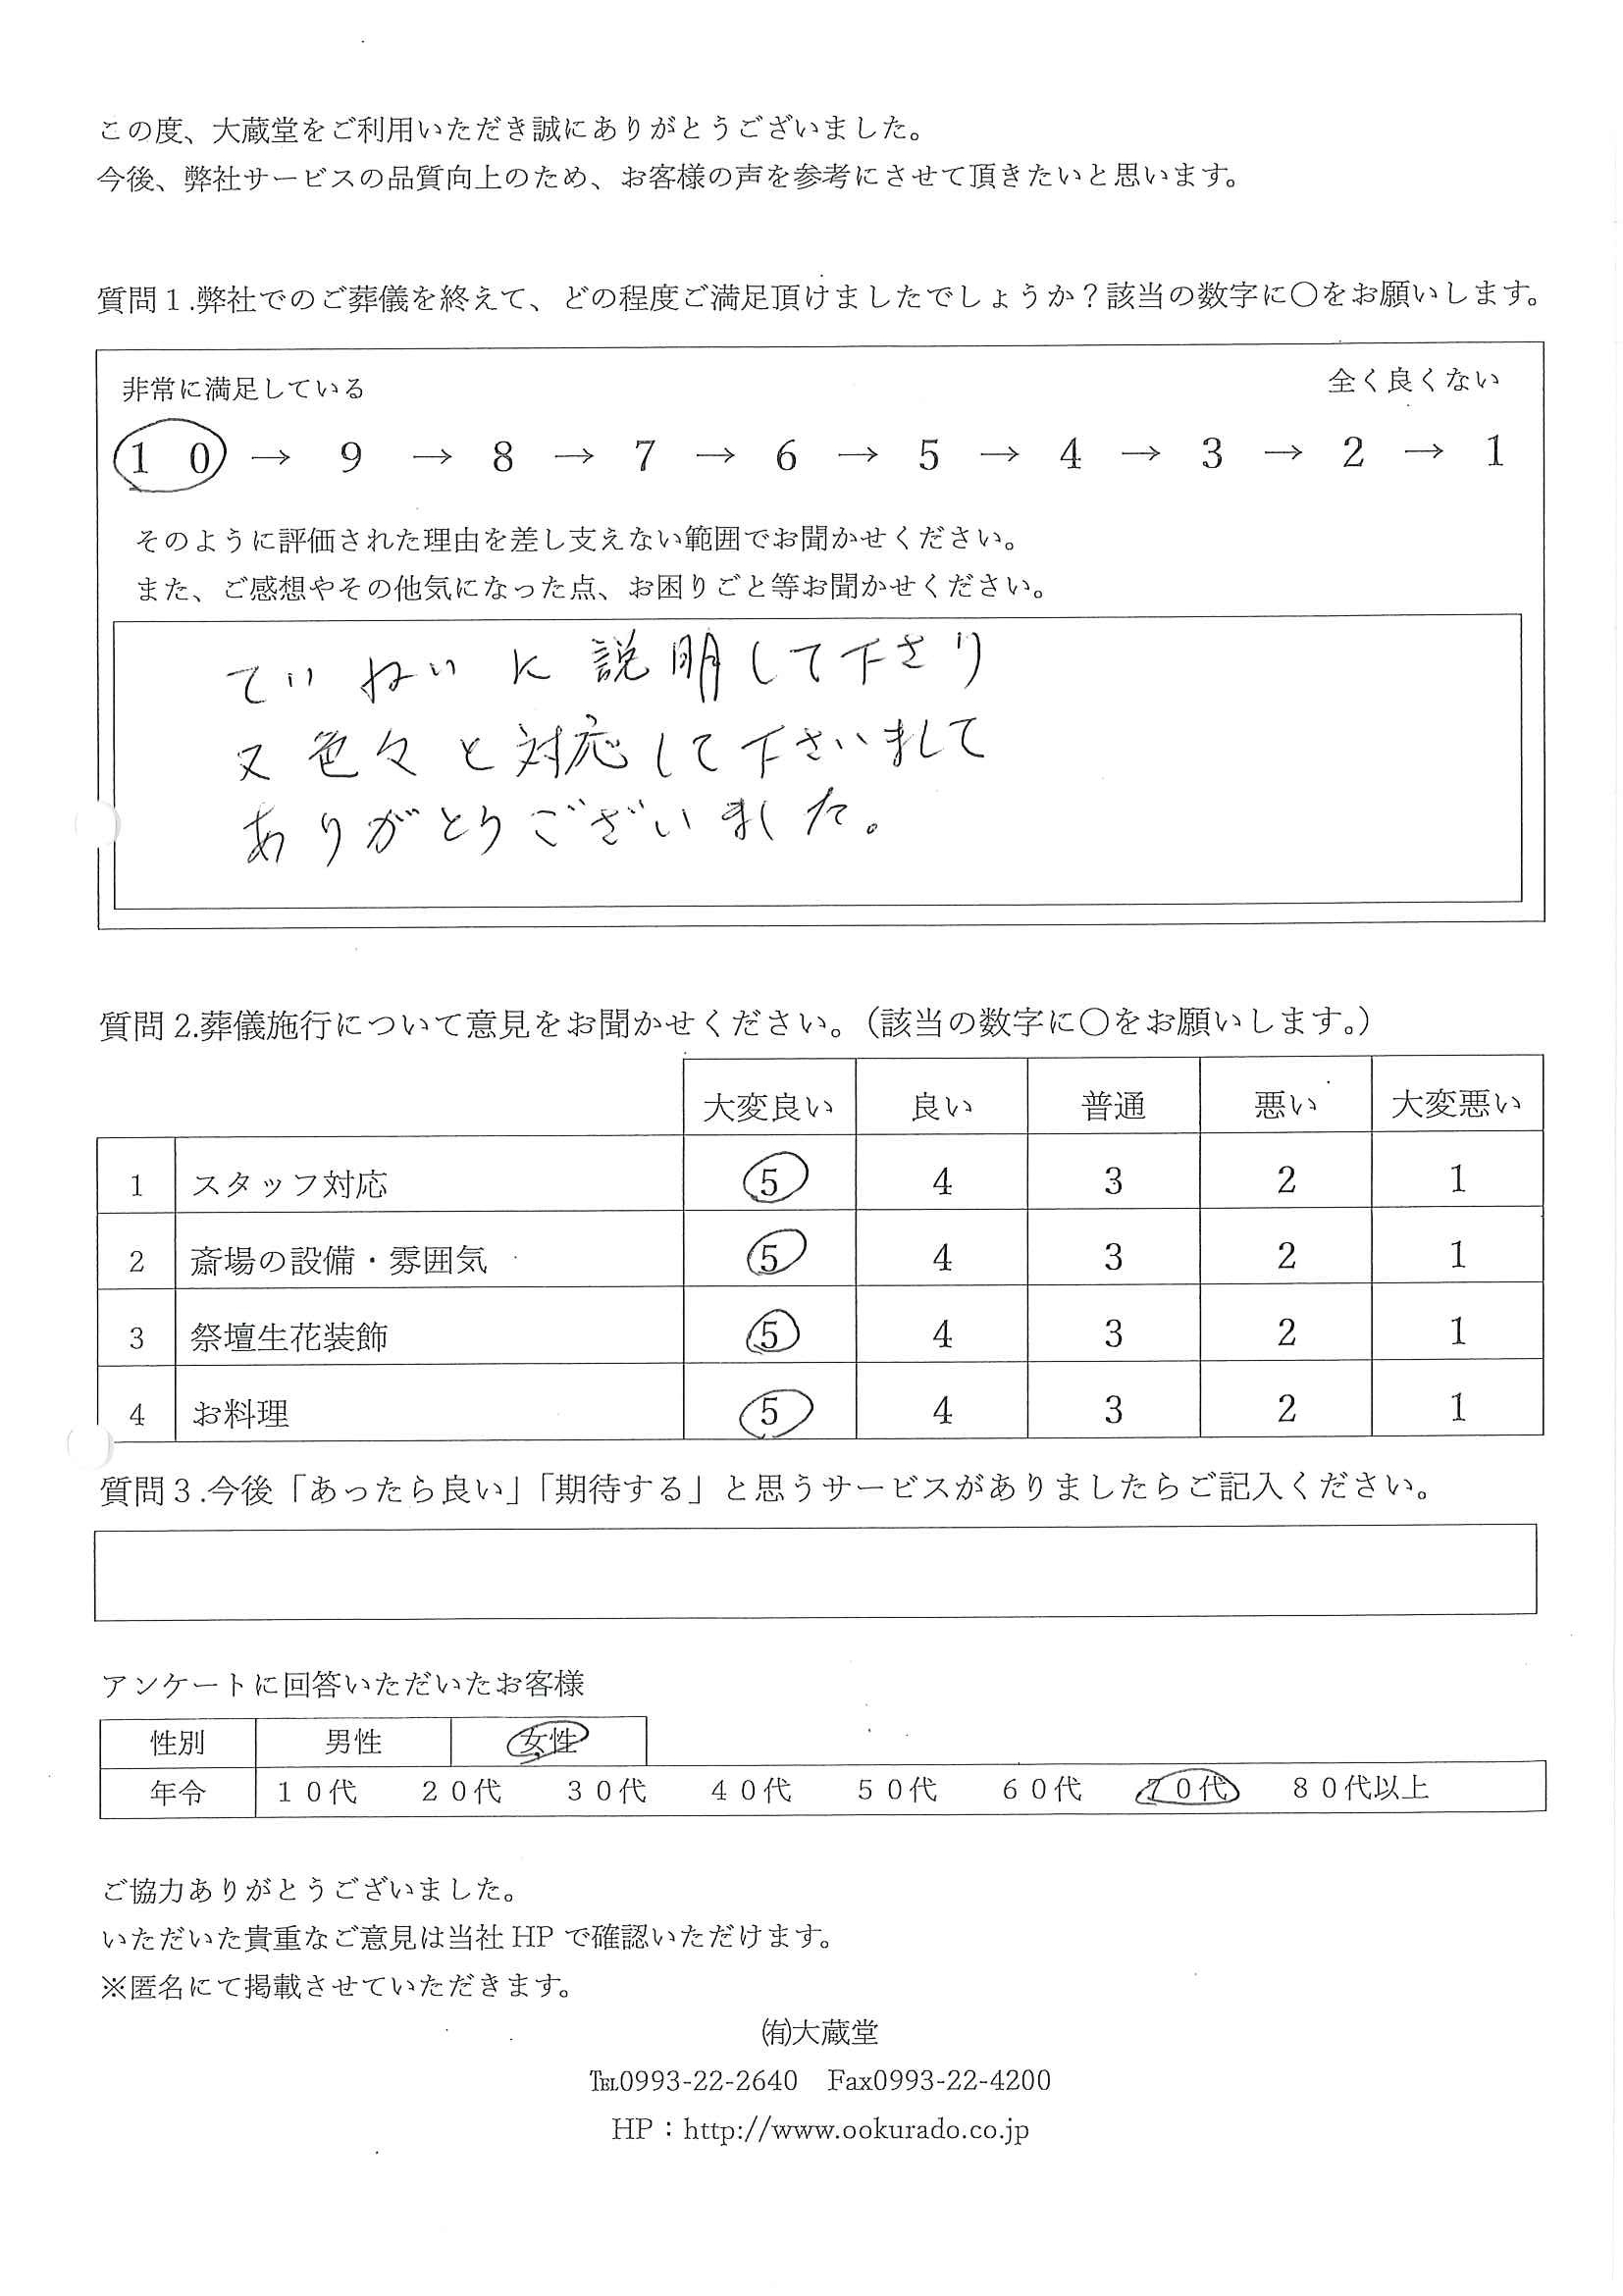 この度、大蔵堂をご利用いただき誠にありがとうございました。
今後、弊社サービスの品質向上のため、お客様の声を参考にさせて頂きたいと思います。
質問１.弊社でのご葬儀を終えて、どの程度ご満足頂けましたでしょうか？該当の数字に〇をお願いします。
非常に満足している 全く良くない
１０ → 9 → 8 → 7 → 6 → 5 → 4 → 3 → 2 → 1
そのように評価された理由を差し支えない範囲でお聞かせください。
また、ご感想やその他気になった点、お困りごと等お聞かせください。
ていねいに説明して下さり
又色々と対応して下さいまして
ありがとうございました。
質問 2.葬儀施行について意見をお聞かせください。（該当の数字に〇をお願いします。）
大変良い 良い 普通 悪い 大変悪い
1 スタッフ対応 5 4 3 2 1
2 斎場の設備・雰囲気 5 4 3 2 1
3 祭壇生花装飾 5 4 3 2 1
4 お料理 5 4 3 2 1
質問３.今後「あったら良い」「期待する」と思うサービスがありましたらご記入ください。
アンケートに回答いただいたお客様
性別 男性 女性
年令 １０代 ２０代 ３０代 ４０代 ５０代 ６０代 ７０代 ８０代以上
ご協力ありがとうございました。
いただいた貴重なご意見は当社 HP で確認いただけます。
※匿名にて掲載させていただきます。
㈲大蔵堂
℡0993-22-2640 Fax0993-22-4200
HP：http://www.ookurado.co.jp